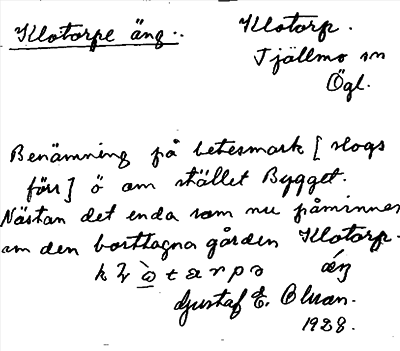 Klotorpe äng.
Klotorp.
Tjällmo sn
Ögl.
Benämning på betesmark [slogs
förr] ö om stället Bygget.
Nästan det enda som nu påminner
om den borttagna gården Klotorp.
Gustaf E.
1928.